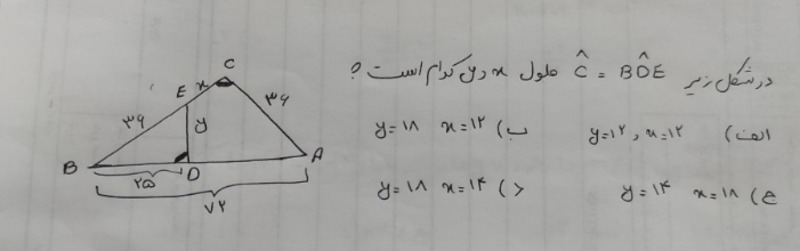 در شکل زیر Ĉ = BD̂E طول x و y کدام است ؟
الف) x=۱۲ , y=۱۲
ب) x=۱۲ y=۱۸
ج) x=۱۸ y=۱۴
د) x=۱۴ y=۱۸
C
E x
۳۶ y ۳۶
B D A
۲۵
۷۲